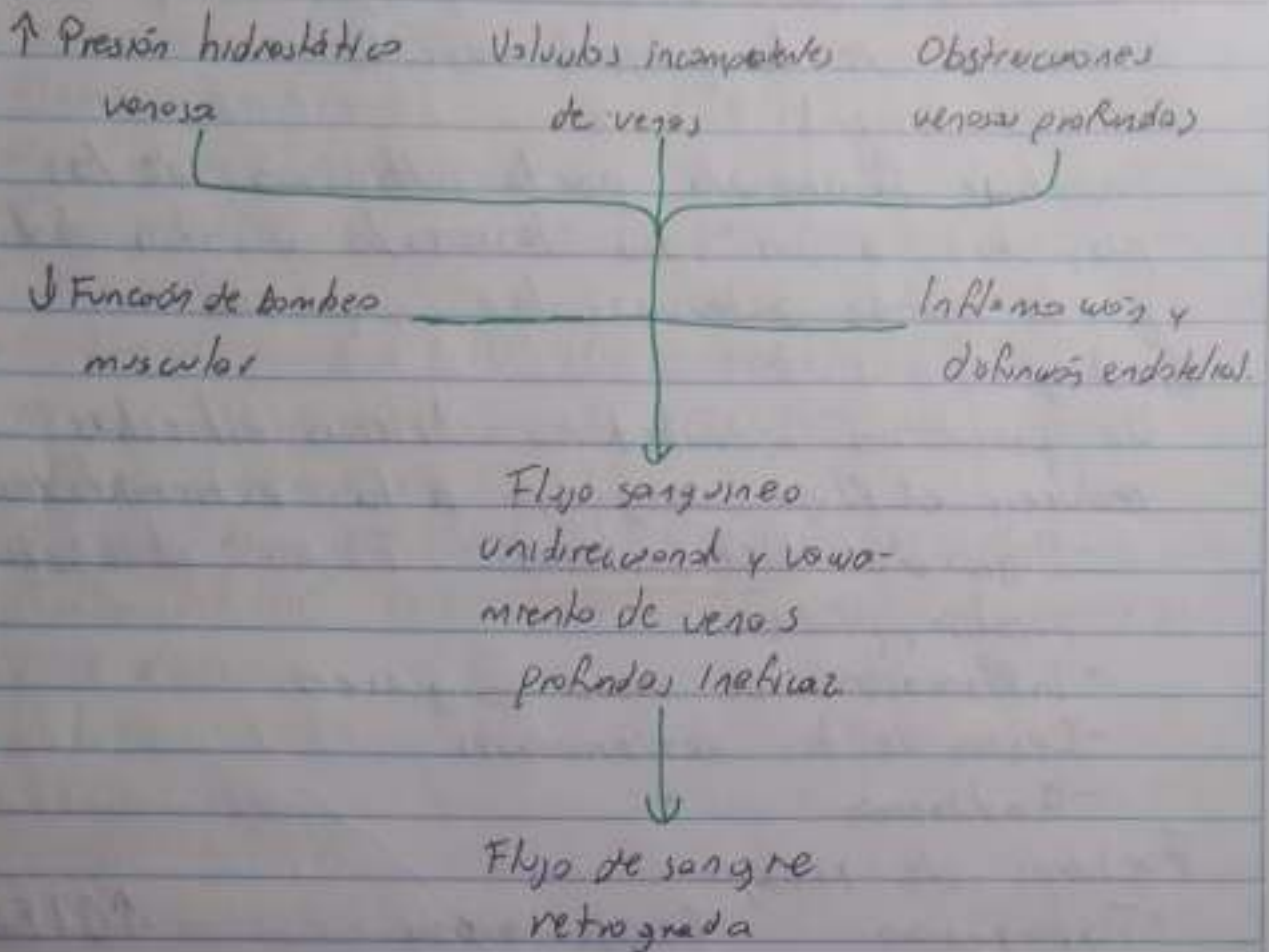 ↑ Presión hidrostática Valvulas incompetentes Obstrucciones
venosa de venas venosas profundas
↓ Función de bombeo Inflamación y
muscular disfunción endotelial.
Flujo sanguineo
unidireccional y vacia-
miento de venas
profundas ineficaz
Flujo de sangre
retrograda